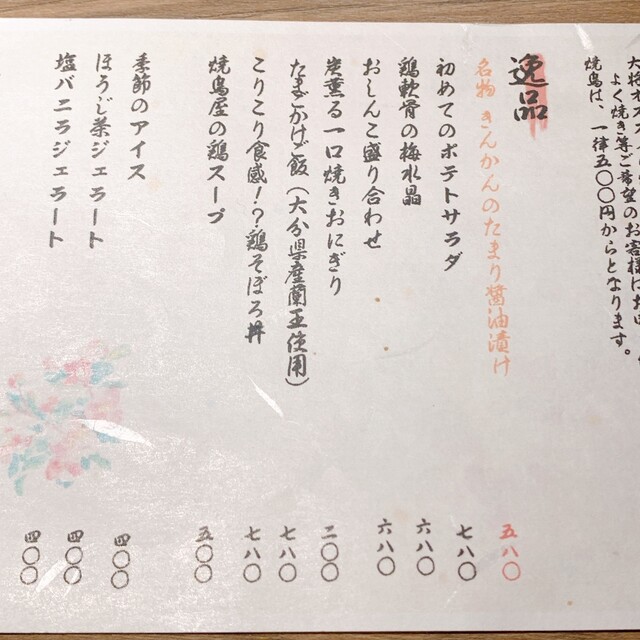 よく焼き等ご希望のお客様は
焼鳥は、一律五〇〇円からとなります。
逸品
名物 きんかんのたまり醤油漬け 五八〇
初めてのポテトサラダ 七八〇
鶏軟骨の梅水晶 六八〇
おしんこ盛り合わせ 六八〇
炭薫る一口焼きおにぎり 二〇〇
たまごかけご飯(大分県産蘭王使用) 七八〇
こりこり食感!?鶏そぼろ丼 七八〇
焼鳥屋の鶏スープ 五〇〇
季節のアイス 四〇〇
ほうじ茶ジェラート 四〇〇
塩バニラジェラート 四〇〇